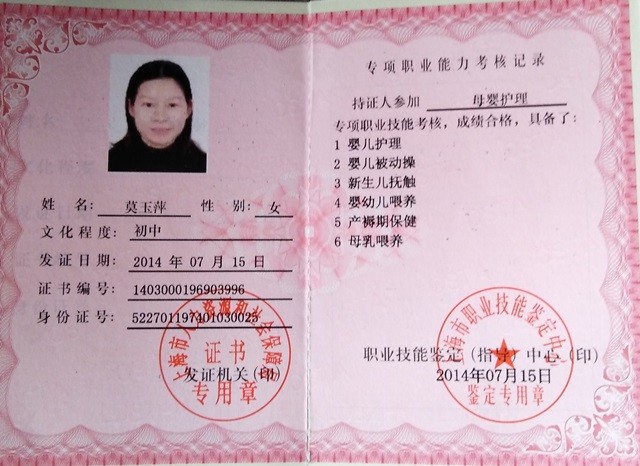 姓 名: 莫玉萍 性 别: 女
文化程度: 初中
发证日期: 2014 年 07 月 15 日
证书编号: 1403000196903996
身份证号: 522701197401030025
上海市人力资源和社会保障局
证书
发证机关(印)
专用章
专项职业能力考核记录
持证人参加 母婴护理
专项职业技能考核，成绩合格，具备了：
1 婴儿护理
2 婴儿被动操
3 新生儿抚触
4 婴幼儿喂养
5 产褥期保健
6 母乳喂养
上海市职业技能鉴定中心
职业技能鉴定(指导)中心(印)
2014年07月15日
鉴定专用章